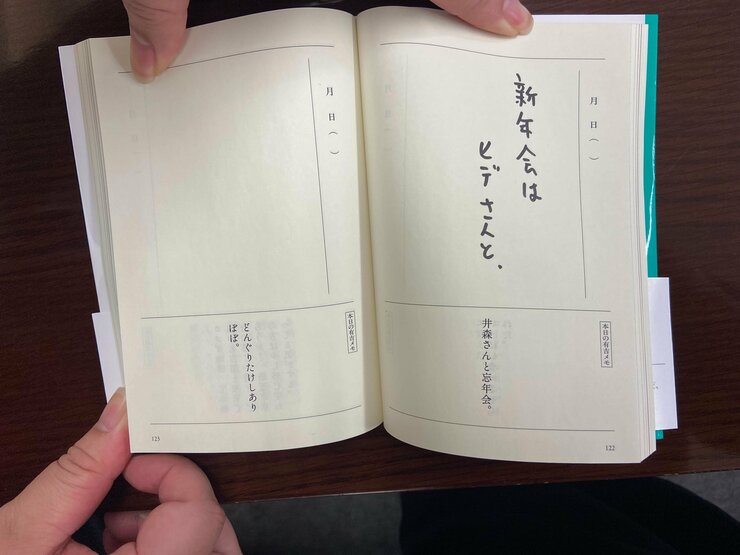 月　日（　）
新年会は
ヒデさんと、
本日の有吉メモ
井森さんと忘年会。
122
月　日（　）
本日の有吉メモ
どんぐりたけしあり
ぽぽ。
123